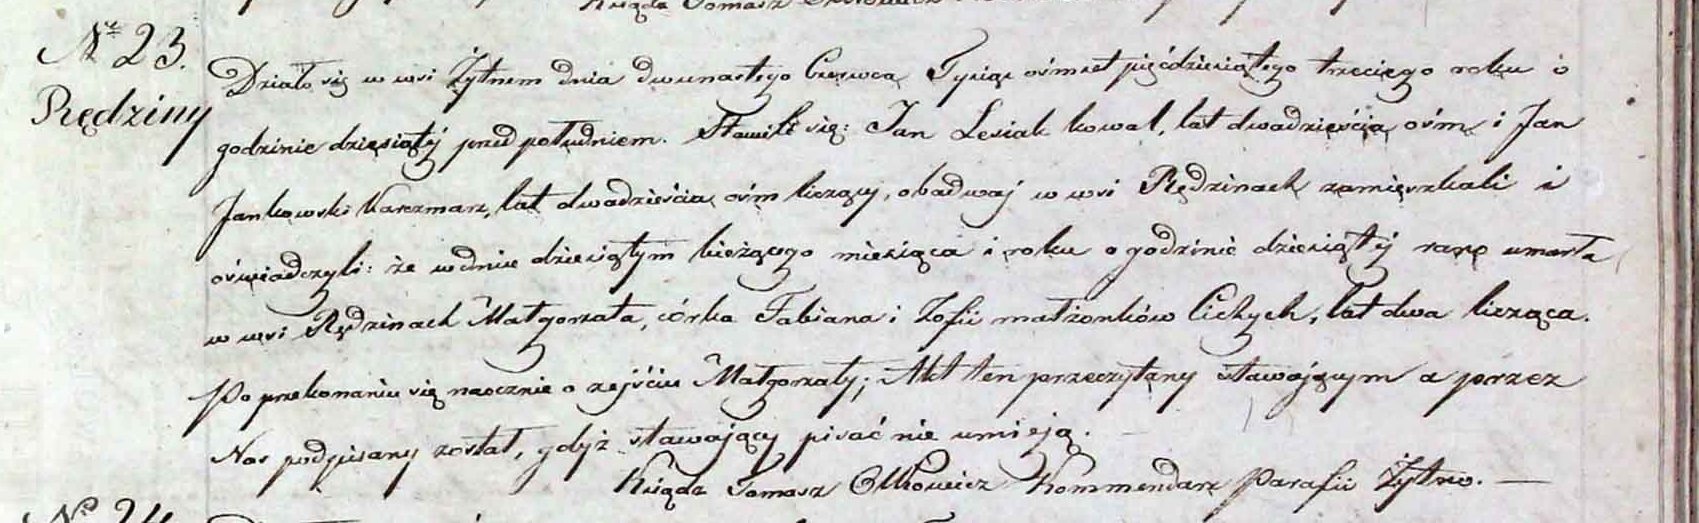 Księdz Tomasz
№ 23. Działo się w wsi Żytnem dnia dwunastego Czerwca Tysiąc ośmset pięćdziesiątego trzeciego roku o
Rędziny godzinie dziesiątéj przed południem. Stawili się: Jan Lesiak kowal, lat dwadzieścia ośm i Jan
Jankowski Karczmarz, lat dwadzieścia ośm liczący, obadwaj w wsi Rędzinach zamieszkali i
oświadczyli: że w dniu dziesiątym bieżącego miesiąca i roku o godzinie dziesiątéj rano umarła
w wsi Rędzinach Małgorzata, córka Fabiana i Zofii małżonków Cichych, lat dwa licząca.
Po przekonaniu się naocznie o zejściu Małgorzaty; Akt ten przeczytany stawającym a przez
Nas podpisany został, gdyż stawający pisać nie umieją.
Ksiądz Tomasz Kommendarz Parafii Żytno.
№ 24